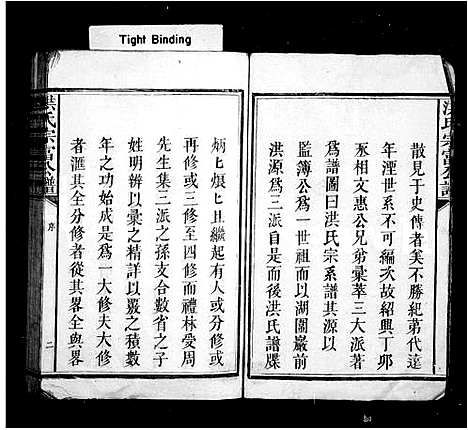 Tight Binding
散見于史傳者矣不勝紀苐代遠
年湮世系不可編次故紹興丁卯
丞相文惠公兄弟彙萃三大派著
爲譜圖曰洪氏宗系譜其源以
監簿公爲一世祖而以湖園巖前
洪源爲三派自是而後洪氏譜牒
炳匕烺匕且繼起有人或分修或
再修或三修至四修而禮林受周
先生集三派之孫支合數省之子
姓明辨以彙之精詳以覈之積數
年之功始成是爲一大修夫大修
者滙其全分修者從其畧全與畧
洪氏宗富公譜
序
二